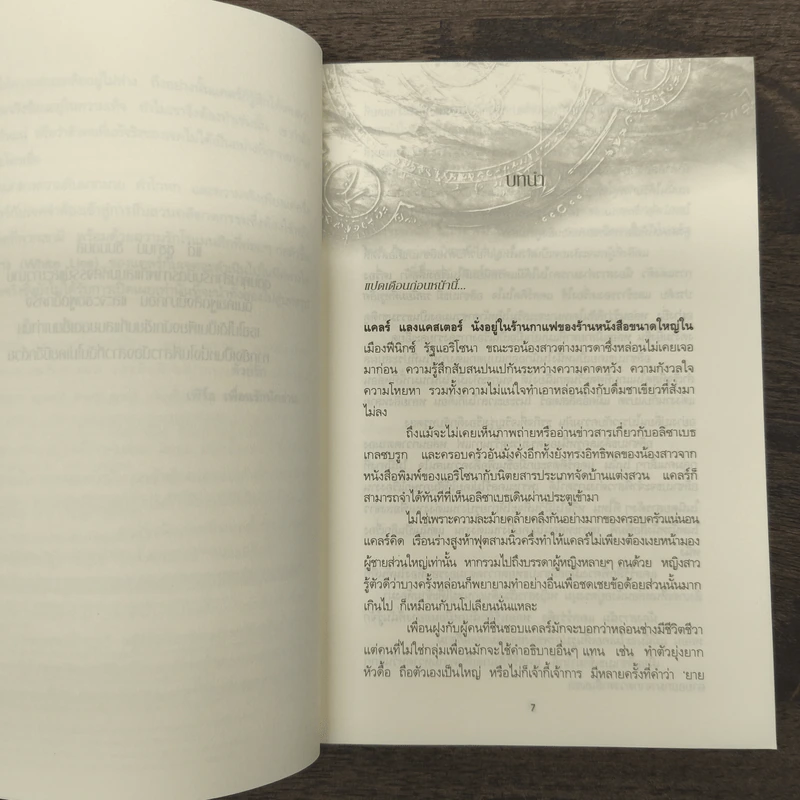 บทนำ
แปดเดือนก่อนหน้านี้...
แคลร์ แลงแคสเตอร์ นั่งอยู่ในร้านกาแฟของร้านหนังสือขนาดใหญ่ใน
เมืองฟีนิกซ์ รัฐแอริโซนา ขณะรอน้องสาวต่างมารดาซึ่งหล่อนไม่เคยเจอ
มาก่อน ความรู้สึกสับสนปนเปกันระหว่างความคาดหวัง ความกังวลใจ
ความโหยหา รวมทั้งความไม่แน่ใจทำเอาหล่อนถึงกับดื่มชาเขียวที่สั่งมา
ไม่ลง
ถึงแม้จะไม่เคยเห็นภาพถ่ายหรืออ่านข่าวสารเกี่ยวกับอลิซาเบธ
เกลซบรูก และครอบครัวอันมั่งคั่งอีกทั้งยังทรงอิทธิพลของน้องสาวจาก
หนังสือพิมพ์ของแอริโซนากับนิตยสารประเภทจัดบ้านแต่งสวน แคลร์ก็
สามารถจำได้ทันทีที่เห็นอลิซาเบธเดินผ่านประตูเข้ามา
ไม่ใช่เพราะความละม้ายคล้ายคลึงกันอย่างมากของครอบครัวแน่นอน
แคลร์คิด เรือนร่างสูงห้าฟุตสามนิ้วครึ่งทำให้แคลร์ไม่เพียงต้องเงยหน้ามอง
ผู้ชายส่วนใหญ่เท่านั้น หากรวมไปถึงบรรดาผู้หญิงหลายๆ คนด้วย หญิงสาว
รู้ตัวดีว่าบางครั้งหล่อนก็พยายามทำอย่างอื่นเพื่อชดเชยข้อด้อยส่วนนั้นมาก
เกินไป ก็เหมือนกับนโปเลียนนั่นแหละ
เพื่อนฝูงกับผู้คนที่ชื่นชอบแคลร์มักจะบอกว่าหล่อนช่างมีชีวิตชีวา
แต่คนที่ไม่ใช่กลุ่มเพื่อนมักจะใช้คำอธิบายอื่นๆ แทน เช่น ทำตัวยุ่งยาก
หัวดื้อ ถือตัวเองเป็นใหญ่ หรือไม่ก็เจ้ากี้เจ้าการ มีหลายครั้งที่คำว่า 'ยาย
7